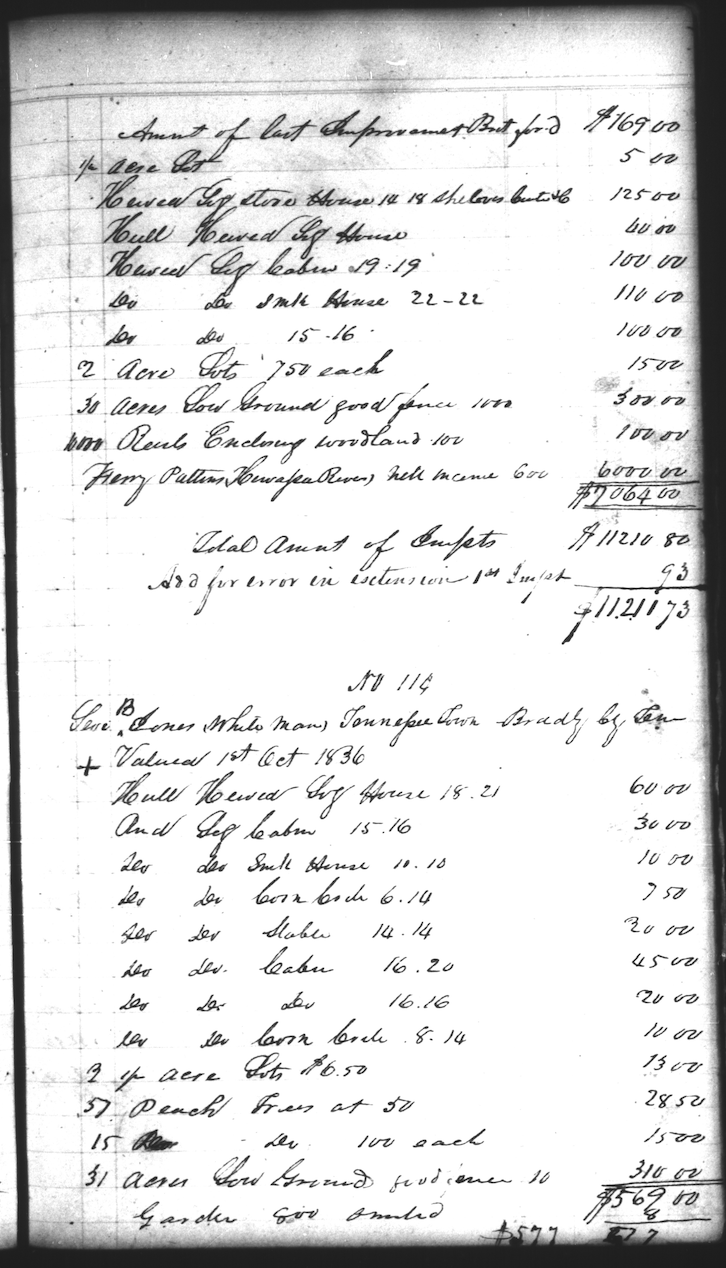 Amnt of last Improvemet Brt for.d $169 00
1/2 acre Lot 5 00
Hewed Log store House 14 18 shelves 125 00
Hull Hewed Log House 40 00
Hewed Log Cabin 19:19 100 00
Do Do Smk House 22-22 110 00
Do Do 15.16 100 00
2 Acre Lots 750 each 15 00
30 acres Low Ground good fence 1000 300 00
10000 Rails Enclosing woodland 100 100 00
Ferry Pattins (Hewassa River) nett income 600 6000 00
$7064 00
Total Amnt of Impts $11210 80
Add for error in extension 1st Impt 93
$11211 73
No 114
B
Jones (White man) Tennessee Town Bradly Cy Ten
+ Valued 1st Oct 1836
Hull Hewed Log House 18.21 60 00
And Log Cabin 15.16 30 00
Do Do Smk House 10.10 10 00
Do Do Corn Crib 6.14 7 50
Do Do Stable 14.14 20 00
Do Do Cabin 16.20 45 00
Do Do Do 16.16 20 00
Do Do Corn Crib 8.14 10 00
2 1/2 acre Lots $6.50 13 00
57 Peach Trees at 50 28 50
15 Do 100 each 15 00
31 Acres Low Ground good fence 10 310 00
$569 00
Garden 800 omited 8
$577 577